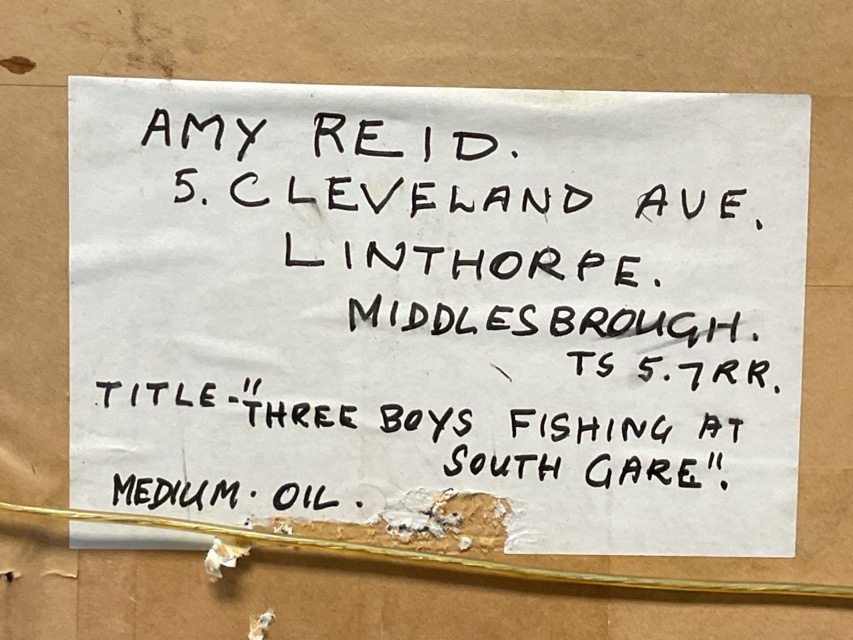 AMY REID.
5. CLEVELAND AVE.
LINTHORPE.
MIDDLESBROUGH.
TS 5.7RR.
TITLE-"THREE BOYS FISHING AT
SOUTH GARE".
MEDIUM. OIL.